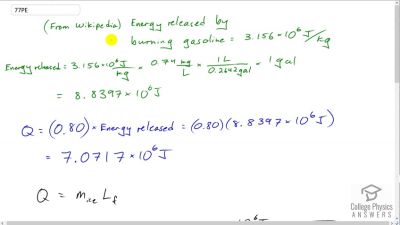 77PE
(From Wikipedia) Energy released by
burning gasoline = 3.156 × 10⁶ J/kg
Energy released = 3.156 × 10⁶ J/kg × 0.74 kg/L × 1 L/0.2642 gal × 1 gal
= 8.8397 × 10⁶ J
Q = (0.80) × Energy released = (0.80)(8.8397 × 10⁶ J)
= 7.0717 × 10⁶ J
Q = m_ice L_f
College Physics
ANSWERS